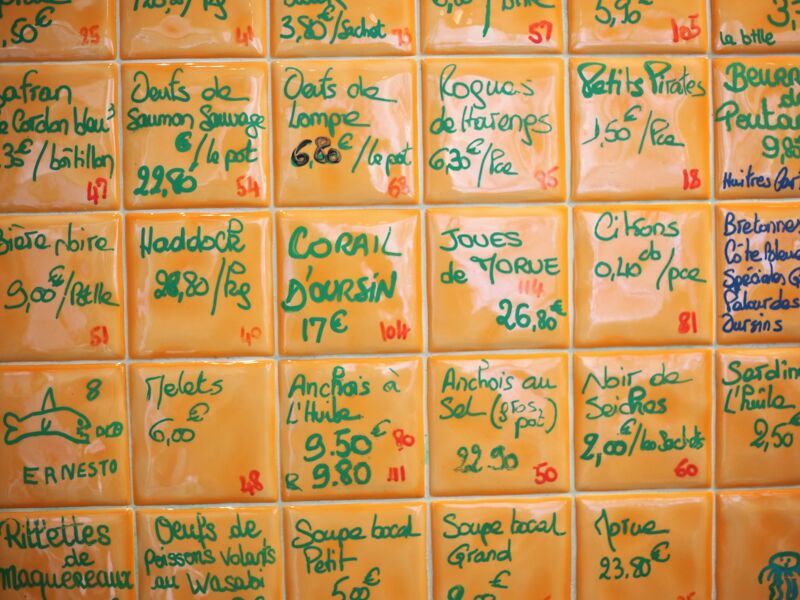 ,50€ 25
3,80€/Sachet 73
57
5,90€ 105
la bille
Safran
le Cordon bleu
,35€/bâtillon
47
Oeufs de
Saumon Sauvage
€/le pot
22,80 54
Oeufs de
Lompe
6,80€/le pot
68
Rogues
de Harengs
6,30€/Pce
95
Petits Pirates
1,50€/Pce
18
Beurre
du
9,80
Bière Noire
9,00€/Btelle
51
Haddock
28,80/Kg
40
CORAIL
D'OURSIN
17€ 104
JOUES
de MORUE
114
26,80€
Citrons
0,40cts/pce
81
Bretonnes
Côte Bleue
Spéciales G
Palourdes
Oursins
8
ERNESTO
Melets
6,00€
48
Anchois à
L'Huile
9.50€ 80
R 9.80 111
Anchois au
Sel (gros
pot)
22.90
50
Noir de
Seiches
2,00€/les Sachets
60
Sardin
L'huile
2,50€
Rillettes
de
Maquereaux
Oeufs de
Poissons Volants
au Wasabi
Soupe bocal
Petit
5,00€
Soupe bocal
Grand
Morue
23.80€